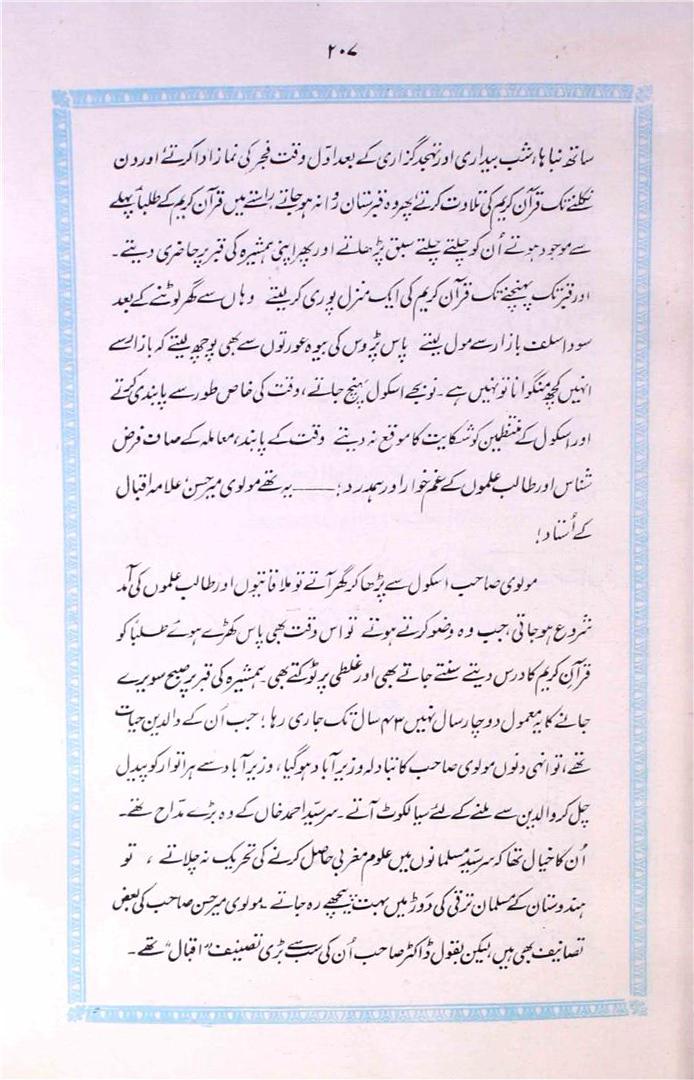 ۲۰۷
ساتھ نباہا، شب بیداری اور تہجد گزاری کے بعد اوّل وقت فجر کی نماز ادا کرتے اور دن
نکلنے تک قرآن کریم کی تلاوت کرتے پھر وہ قبرستان روانہ ہو جاتے راستے میں قرآن کریم کے طلبا پہلے
سے موجود ہوتے اُن کو چلتے چلتے سبق پڑھاتے اور پھر اپنی ہمشیرہ کی قبر پر حاضری دیتے۔
اور قبر تک پہنچنے تک قرآن کریم کی ایک منزل پوری کر لیتے وہاں سے گھر لوٹنے کے بعد
سودا سلف بازار سے مول لیتے پاس پڑوس کی بیوہ عورتوں سے بھی پوچھ لیتے کہ بازار سے
انہیں کچھ منگوانا تو نہیں ہے۔ نو بجے اسکول پہنچ جاتے، وقت کی خاص طور سے پابندی کرتے
اور اسکول کے منتظمین کو شکایت کا موقع نہ دیتے وقت کے پابند، معاملہ کے صاف فرض
شناس اور طالب علموں کے غم خوار اور ہمدرد؛ ـــــــ یہ تھے مولوی میر حسنؒ علامہ اقبال
کے اُستاد؛
مولوی صاحب اسکول سے پڑھا کر گھر آتے تو ملاقاتیوں اور طالب علموں کی آمد
شروع ہو جاتی، جب وہ وضو کرتے ہوتے تو اس وقت بھی پاس کھڑے ہوئے طلبا کو
قرآن کریم کا درس دیتے سنتے جاتے بھی اور غلطی پر ٹوکتے بھی۔ ہمشیرہ کی قبر پر صبح سویرے
جانے کا یہ معمول دو چار سال نہیں ۴۳ سال تک جاری رہا؛ جب اُن کے والدین حیات
تھے، تو انہی دنوں مولوی صاحب کا تبادلہ وزیر آباد ہو گیا، وزیر آباد سے ہر اتوار کو پیدل
چل کر والدین سے ملنے کے لئے سیالکوٹ آتے۔ سرسیّد احمد خاں کے وہ بڑے مدّاح تھے۔
اُن کا خیال تھا کہ سرسیّد مسلمانوں میں علوم مغربی حاصل کرنے کی تحریک نہ چلاتے، تو
ہندوستان کے مسلمان ترقی کی دَوڑ میں بہت پیچھے رہ جاتے۔ مولوی میر حسن صاحب کی بعض
تصانیف بھی ہیں لیکن بقول ڈاکٹر صاحب اُن کی سب سے بڑی تصنیف "اقبال" تھے۔